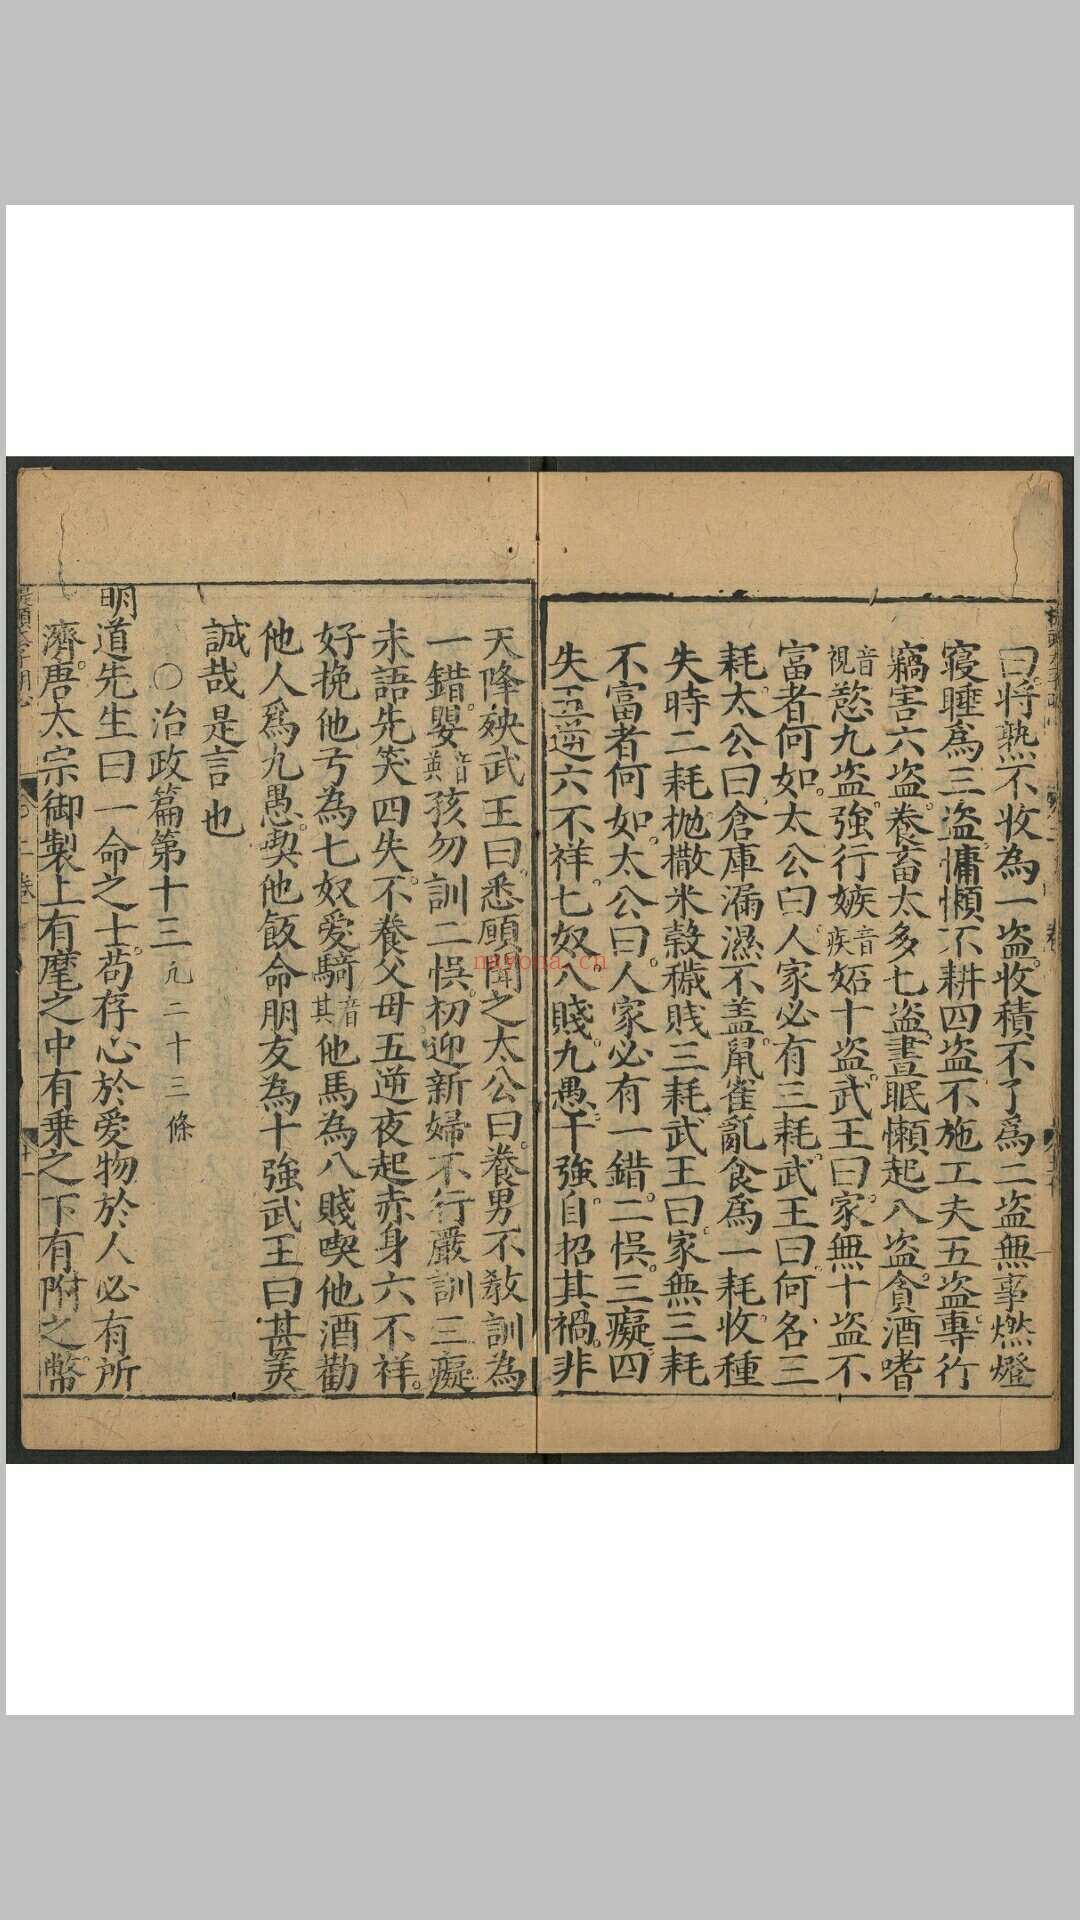 曰將熟不收為一盜收積不了爲二盜無事燃燈
寢睡爲三盜慵懶不耕四盜不施工夫五盜專行
竊害六盜養畜太多七盜晝眠懶起八盜貪酒嗜
音視慾九盜強行嫉音疾妬十盜武王曰家無十盜不
富者何如太公曰人家必有三耗武王曰何名三
耗太公曰倉庫漏濕不盖鼠雀亂食爲一耗收種
失時二耗抛撒米穀穢賎三耗武王曰家無三耗
不富者何如太公曰人家必有一錯二悞三癡四
失五逆六不祥七奴八賤九愚十強自招其禍非
天降殃武王曰悉願聞之太公曰養男不敎訓為
一錯嬰音孩勿訓二悞初迎新婦不行嚴訓三癡
未語先笑四失不養父母五逆夜起赤身六不祥
好挽他弓為七奴爱騎音其他馬為八賤喫他酒勸
他人爲九愚喫他飯命朋友為十強武王曰甚美
誠哉是言也
〇治政篇第十三凢二十三條
明道先生曰一命之士苟存心於爱物於人必有所
濟唐太宗御製上有麾之中有乗之下有附之幣
mayona.cn